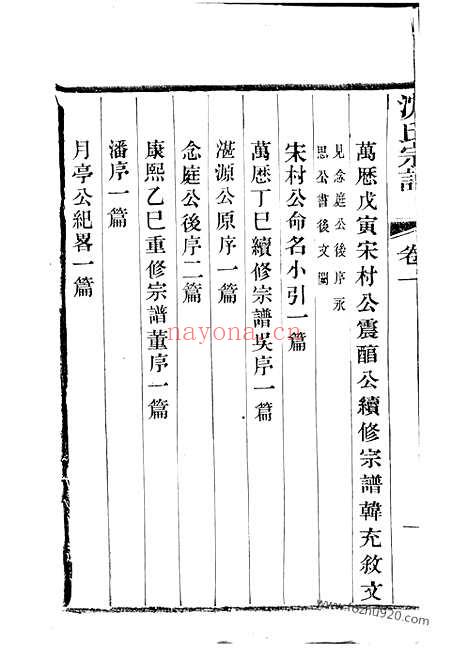 沈氏宗譜
卷一
一
萬歷戊寅宋村公震酳公續修宗譜韓充敘文
見念庭公後序永
思公書後文闕
宋村公命名小引一篇
萬歷丁巳續修宗譜吳序一篇
湛源公原序一篇
念庭公後序二篇
康熙乙巳重修宗譜董序一篇
潘序一篇
月亭公紀畧一篇
nayona.cn
www.fozhu920.com